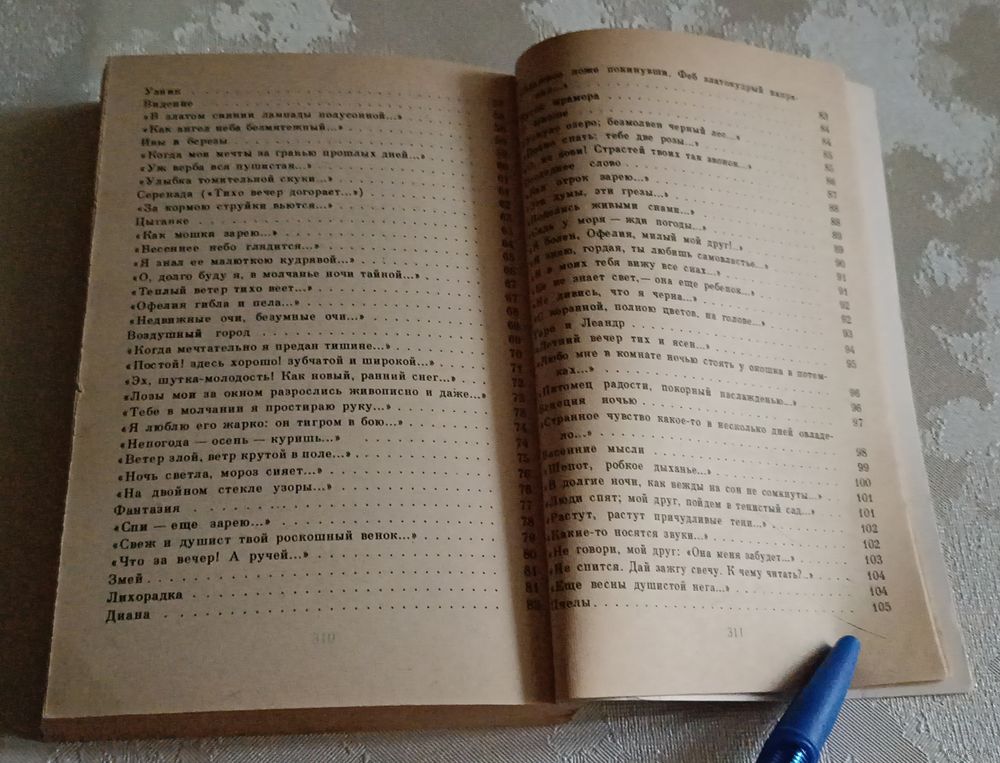 Узник
Видение
«В златом сиянии лампады полусонной...»
«Как ангел неба безмятежный...»
Ивы и березы
«Когда мои мечты за гранью прошлых дней...»
«Уж верба вся пушистая...»
«Улыбка томительной скуки...»
Серенада («Тихо вечер догорает...»)
«За кормою струйки вьются...»
Цыганке
«Как мошка зарею...»
«Весеннее небо глядится...»
«Я знал ее малюткою кудрявой...»
«О, долго буду я, в молчанье ночи тайной...»
«Теплый ветер тихо веет...»
«Офелия гибла и пела...»
«Недвижные очи, безумные очи...»
Воздушный город
«Когда мечтательно я предан тишине...»
«Постой! здесь хорошо! зубчатой и широкой...»
«Эх, шутка-молодость! Как новый, ранний снег...»
«Лозы мои за окном разрослись живописно и даже...»
«Тебе в молчании я простираю руку...»
«Я люблю его жарко: он тигром в бою...»
«Непогода — осень — куришь...»
«Ветер злой, ветр крутой в поле...» 75
«Ночь светла, мороз сияет...» 76
«На двойном стекле узоры...» 76
Фантазия 77
«Спи — еще зарею...» 78
«Свеж и душист твой роскошный венок...» 79
«Что за вечер! А ручей...» 80
Змей 81
Лихорадка 81
Диана 82
310
ложе покинувши, Феб златокудрый напра-
83
мрамора 84
84
озеро; безмолвен черный лес...» 85
спать: тебе две розы...» 85
зови! Страстей твоих так звонок...» 86
слово 87
отрок зарею...» 88
думы, эти грезы...» 88
живыми снами...» 89
у моря — жди погоды...» 89
болен, Офелия, милый мой друг!..» 90
гордая, ты любишь самовластье...» 91
в моих тебя вижу все снах...» 91
не знает свет,— она еще ребенок...» 92
дивись, что я черна...» 92
корзиной, полною цветов, на голове...» 93
Геро и Леандр 94
«Летний вечер тих и ясен...» 95
«Любо мне в комнате ночью стоять у окошка в потем-
ках...» 96
«Питомец радости, покорный наслажденью...» 96
Венеция ночью 97
«Странное чувство какое-то в несколько дней овладе-
ло...» 98
Весенние мысли 99
«Шепот, робкое дыханье...» 100
«В долгие ночи, как вежды на сон не сомкнуты...» 101
«Люди спят; мой друг, пойдем в тенистый сад...» 101
«Растут, растут причудливые тени...» 102
«Какие-то носятся звуки...» 102
«Не говори, мой друг: «Она меня забудет...» 103
«Не спится. Дай зажгу свечу. К чему читать?..» 104
«Еще весны душистой нега...» 104
Пчелы 105
311